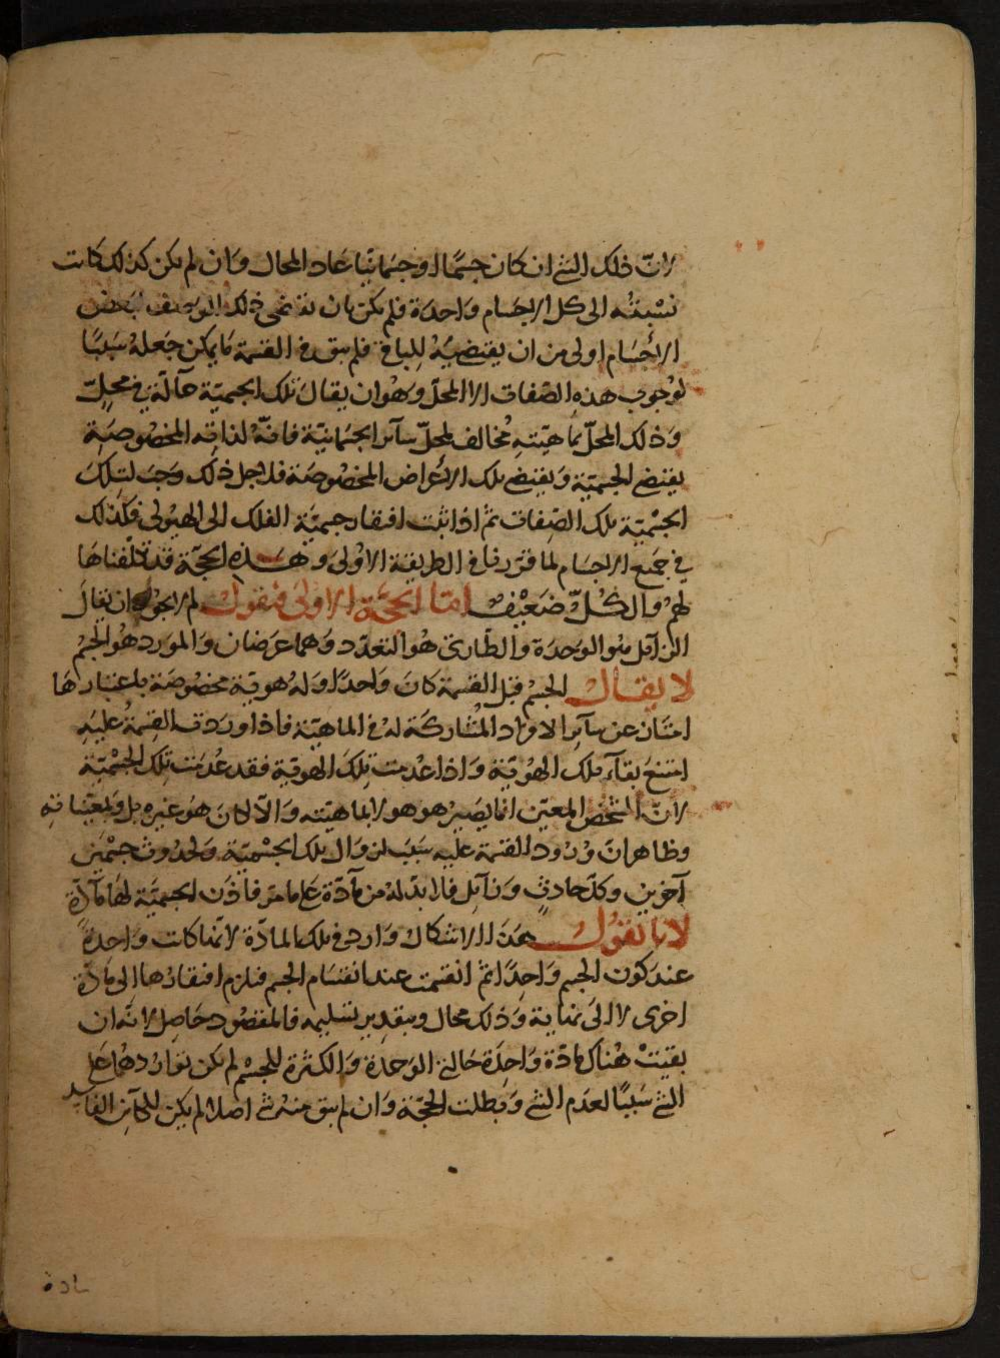 لانّ ذلك الشئ ان كان جسمًا او جسمانيّا عاد المحال وان لم يكن كذلك كانت
نسبته الى كل الاجسام واحدة فلم يكن بان يقتضى ذلك الوصف لبعض
الاجسام اولى من ان يقتضيه للباقى فلم يبق فى القسمة ما يمكن جعله سببًا
لوجوب هذه الصفات الا المحلّ وهو ان يقال تلك الجسميّة حآلّة فى محلّ
وذلك المحلّ بماهيّته مخالف لمحلّ سآئر الجسمانيّة فانّه لذاته المخصوصة
يقتضى الجسميّة ويقتضى تلك الاعراض المخصوصة فلاجل ذلك وجب لتلك
الجسْميّة تلك الصفات ثم اذا ثبت افتقار جسميّة الفلك الى الهيولى فكذلك
فى جميع الاجسام لما قرّرنا فى الطريقة الاولى وهذه الحجّة قد تكلّفناها
لهم والكلّ ضعيف امّا الحجّة الاولى فنقول لم لا يجوز ان يقال
الزآئل هو الوحدة والطارئ هو التعدّد وهما عرضان والمورد هو الجسم
لا يقال الجسم قبل القسمة كان واحدًا وله هويّة مخصوصة باعتبارها
امتان عن سآئر الافراد المشاركة له فى الماهيّة فاذا وردت القسمة عليه
امتنع بقآء تلك الهويّة واذا عدمت تلك الهويّة فقد عُدمت تلك الجسميّة
لانّ الشخص المعيّن انما يصير هو هو لا بماهيّته والّا لكان هو غيره بل وبتعيّناته
وظاهر ان ورود القسمة عليه سبب لزوال تلك الجسْميّة ولحدوث جسْمين
آخرين وكلّ حادث وزآئل فلا بدّ له من مآدّة على ما مر فاذن الجسميّة لها مآدّة
لانا نقول هذا الاشكال وارد فى تلك المادّة لانها كانت واحدةً
عند كون الجسم واحدًا ثم انقسمت عند انقسام الجسم فيلزم افتقارها الى مادّة
اخرى لا الى نهاية وذلك محال وبتقدير تسليمه فالمقصود حاصل لانّه ان
بقيتْ هناك مادّة واحدة حالتى الوحدة والكثرة للجسم لم يكن تواردهما على
الشئ سببًا لعدم الشئ وبطلت الحجّة وان لم يبق منه شئ اصلًا لم يكن للكآئن الفاسد
مادة